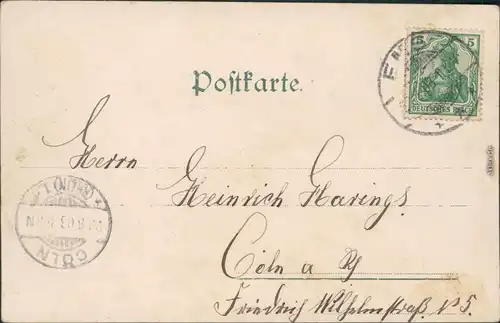 5
DEUTSCHES REICH
Postkarte.
Herrn
Heinrich Harings
Cöln a Rh
Friedrich Wilhelmstraß. No 5.
CÖLN